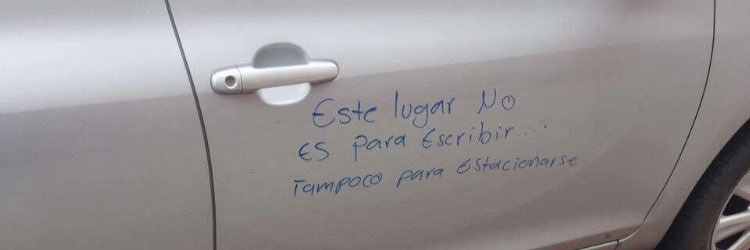 Este lugar No
Es para Escribir....
Tampoco para Estacionarse